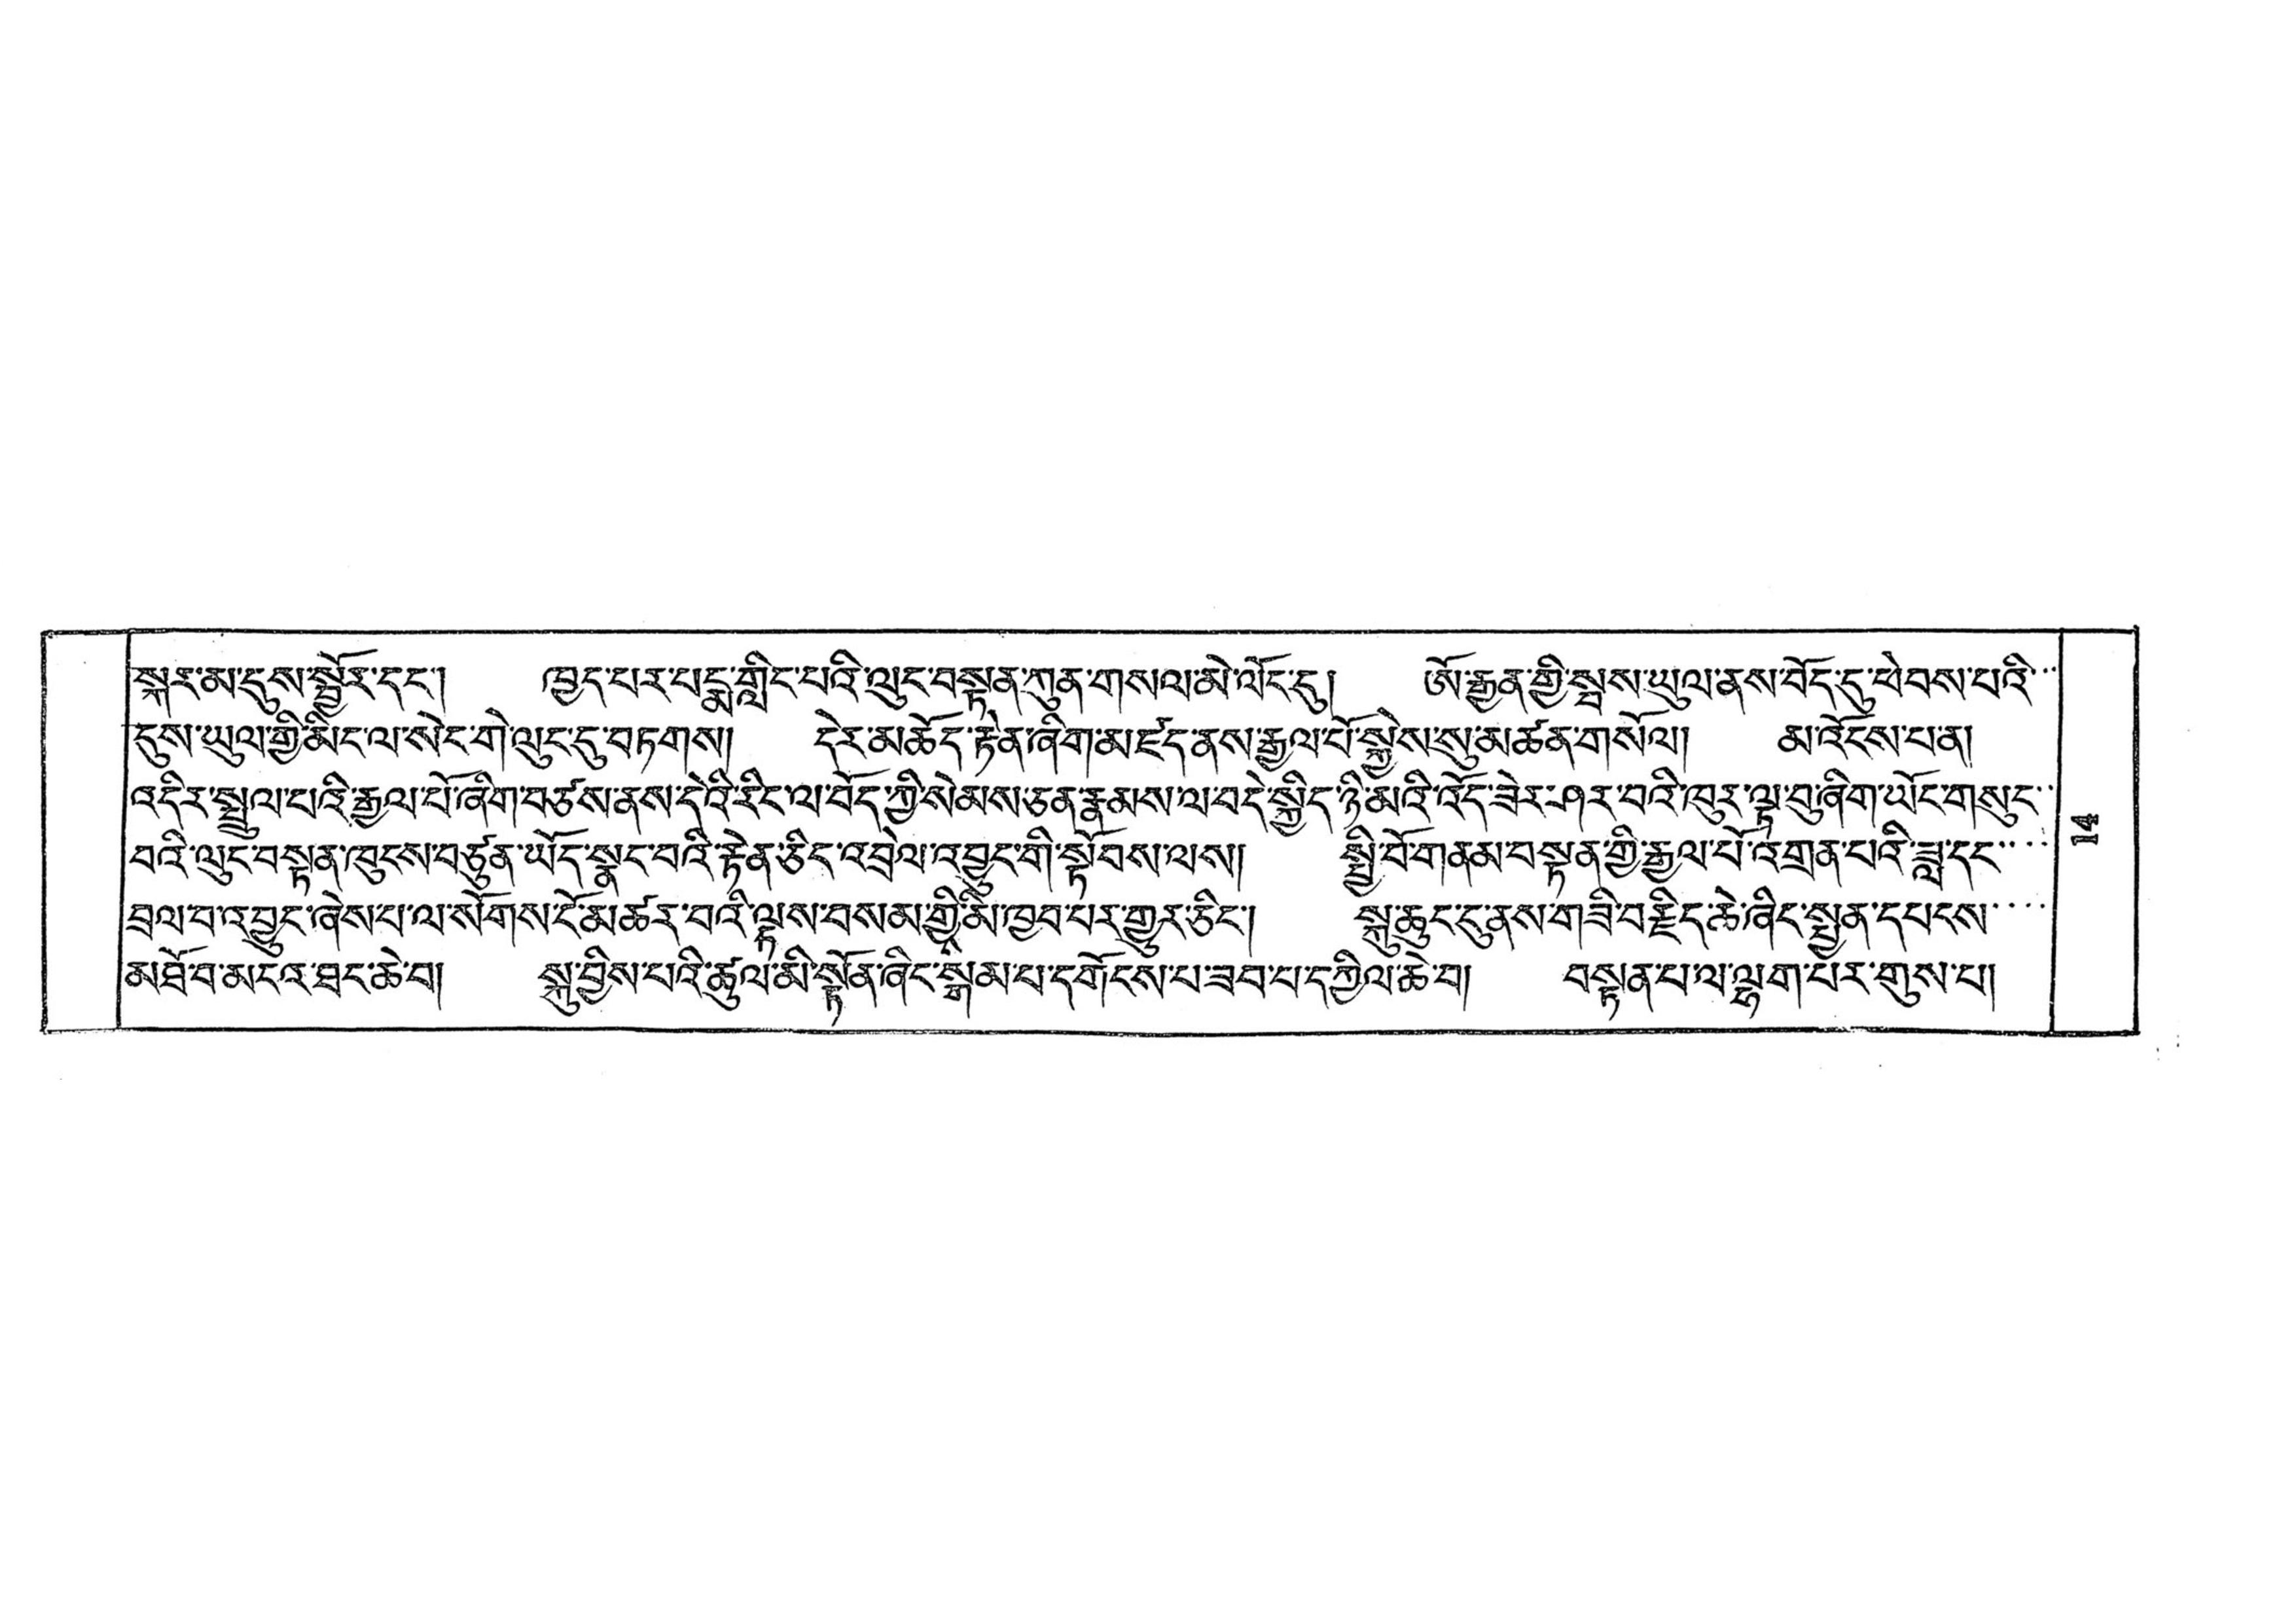 སྐར་མ་དུས་སྦྱོར་དང་། ཁྱད་པར་པདྨ་གླིང་པའི་ལུང་བསྟན་ཀུན་གསལ་མེ་ལོང་དུ། ཨོ་རྒྱན་གྱི་སྦས་ཡུལ་ནས་བོད་དུ་ཕེབས་པའི་
དུས་ཡུལ་གྱི་མིང་ལ་སེང་གེ་ལུང་དུ་བཏགས། དེར་མཆོད་རྟེན་ཞིག་མཛད་ནས་རྒྱལ་པོ་སྐྱེས་སུ་མཚན་གསོལ། མ་འོངས་པ་ན།
འདིར་སྤྲུལ་པའི་རྒྱལ་པོ་ཞིག་བཙས་ནས་དེའི་རིང་ལ་བོད་ཀྱི་སེམས་ཅན་རྣམས་ལ་བདེ་སྐྱིད་ཉི་མའི་འོད་ཟེར་ཤར་བའི་ཁུར་ལྟ་བུ་ཞིག་ཡོང་གསུང་
བའི་ལུང་བསྟན་ཁུངས་བཙུན་ཡོད་སྣང་བའི་རྟེན་ཅིང་འབྲེལ་འབྱུང་གི་སྟོབས་ལས། སྤྱི་བོ་གནམ་བསྟན་གྱི་རྒྱལ་པོ་འགྲན་པའི་ཟླ་དང་
བྲལ་བ་འབྱུང་ཞེས་པ་ལ་སོགས་ངོ་མཚར་བའི་ལྟས་བསམ་གྱི་མི་ཁྱབ་པར་གྱུར་ཅིང་། སྐུ་ཆུང་ངུ་ནས་གཟི་བརྗིད་ཆེ་ཞིང་སྤྱན་དཔངས
མཐོ་བ་མངའ་ཐང་ཆེ་བ། སྐུ་བྱིས་པའི་ཚུལ་མི་སྟོན་ཞིང་སྒམ་པ་དགོངས་པ་ཟབ་པ་དཀྱིལ་ཆེ་བ། བསྟན་པ་ལ་ལྷག་པར་གུས་པ།
14